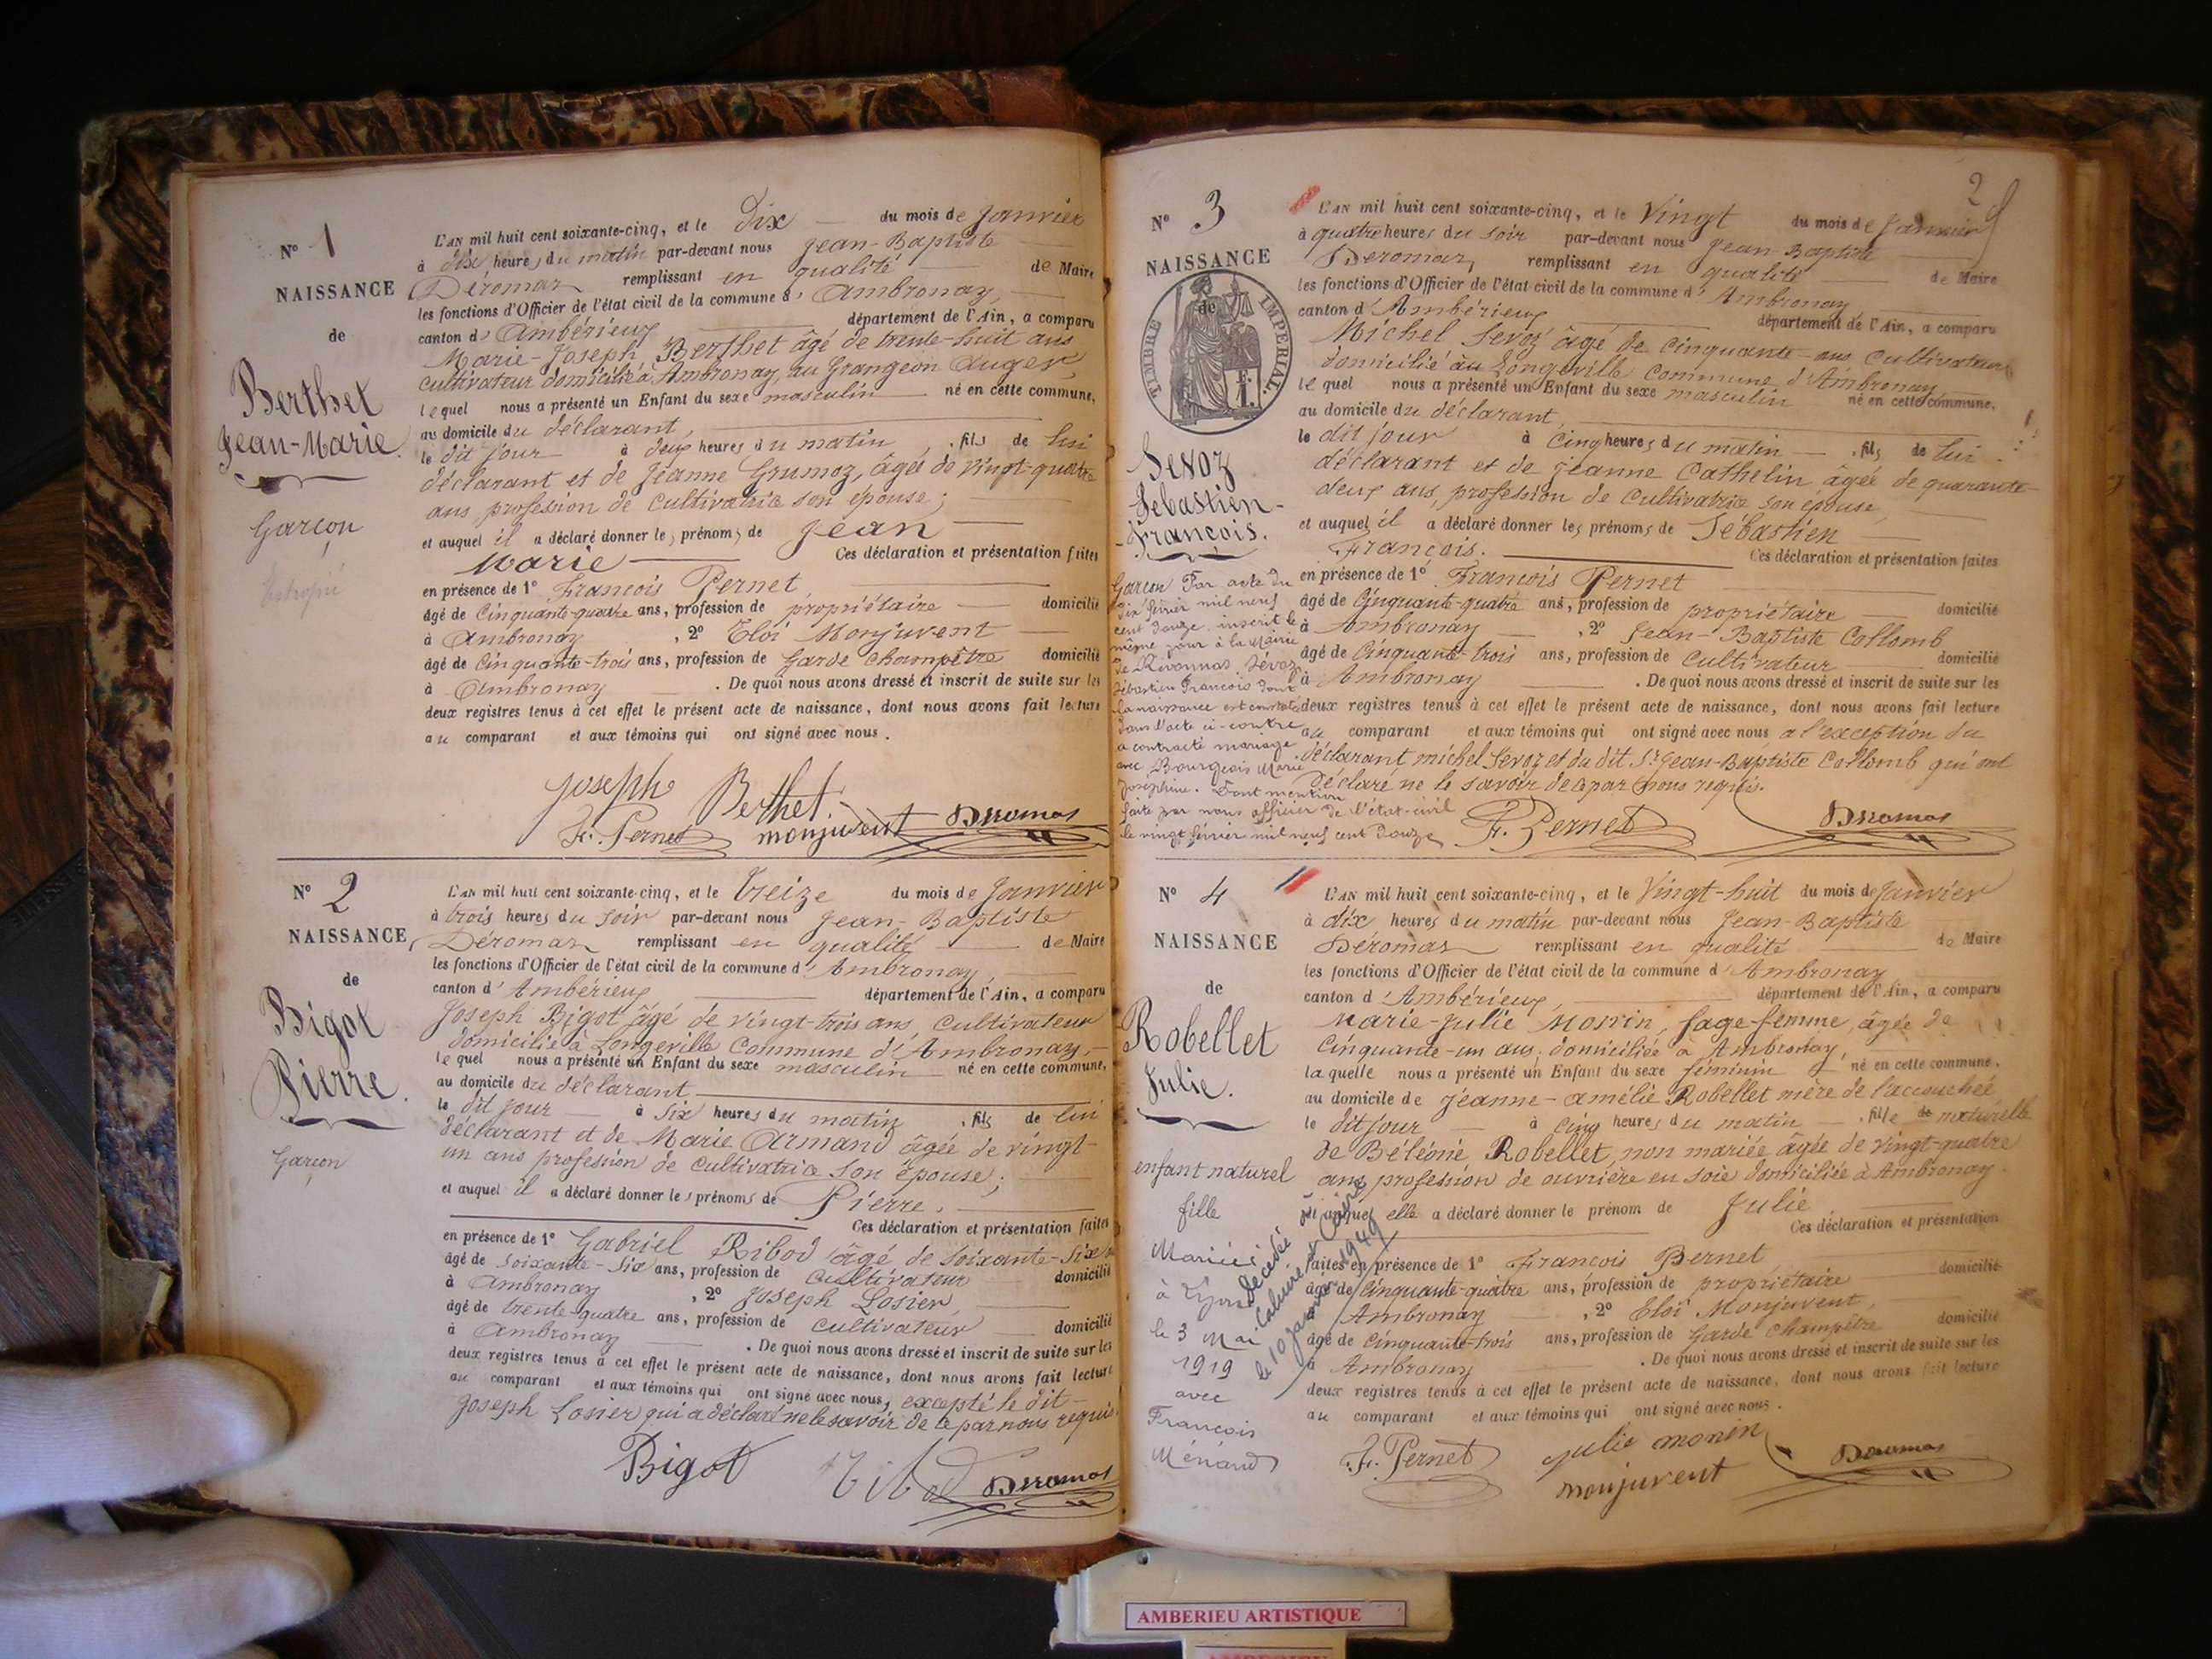 N° 1
NAISSANCE
de
Berthet
Jean-Marie.
Garçon
Estropié
L'AN mil huit cent soixante-cinq, et le Dix du mois de Janvier
à dix heures du matin par-devant nous Jean-Baptiste
Déromas remplissant en qualité de Maire
les fonctions d'Officier de l'état civil de la commune d' Ambronay,
canton d' Ambérieux département de l'Ain, a comparu
Marie-Joseph Berthet âgé de trente-huit ans
cultivateur domicilié à Ambronay, au Grangeon Auger
lequel nous a présenté un Enfant du sexe masculin né en cette commune,
au domicile du déclarant,
le dit jour à deux heures du matin, fils de lui
déclarant et de Jeanne Grumoz, âgée de vingt-quatre
ans, profession de cultivatrice son épouse;
et auquel il a déclaré donner les prénoms de Jean
Marie Ces déclaration et présentation faites
en présence de 1° François Pernet
âgé de Cinquante-quatre ans, profession de propriétaire domicilié
à Ambronay, 2° Eloi Monjuvent
âgé de Cinquante-trois ans, profession de Garde Champêtre domicilié
à Ambronay. De quoi nous avons dressé et inscrit de suite sur les
deux registres tenus à cet effet le présent acte de naissance, dont nous avons fait lecture
au comparant et aux témoins qui ont signé avec nous.
Joseph Berthet
F. Pernet monjuvent Déromas
N° 2
NAISSANCE
de
Bigot
Pierre.
Garçon
L'AN mil huit cent soixante-cinq, et le treize du mois de Janvier
à trois heures du soir par-devant nous Jean-Baptiste
Déromas remplissant en qualité de Maire
les fonctions d'Officier de l'état civil de la commune d' Ambronay,
canton d' Ambérieux département de l'Ain, a comparu
Joseph Bigot âgé de vingt-trois ans, cultivateur
domicilié à Longeville Commune d'Ambronay,
lequel nous a présenté un Enfant du sexe masculin né en cette commune,
au domicile du déclarant
le dit jour à six heures du matin, fils de lui
déclarant et de Marie Armand âgée de vingt-
un ans profession de cultivatrice son épouse;
et auquel il a déclaré donner les prénoms de Pierre.
Ces déclaration et présentation faites
en présence de 1° Gabriel Ribod âgé de soixante-six
âgé de soixante-six ans, profession de cultivateur domicilié
à Ambronay, 2° Joseph Losier,
âgé de trente-quatre ans, profession de cultivateur domicilié
à Ambronay. De quoi nous avons dressé et inscrit de suite sur les
deux registres tenus à cet effet le présent acte de naissance, dont nous avons fait lecture
au comparant et aux témoins qui ont signé avec nous, excepté le dit
Joseph Losier qui a déclaré ne le savoir de ce par nous requis.
Bigot Ribod Déromas
2
N° 3
NAISSANCE
de
TIMBRE IMPERIAL.
Sevoz
Sebastien-
François.
Garçon Par acte du
dix février mil neuf
cent douze, inscrit le
même jour à la Mairie
de Sévoz
Sébastien François dont
la naissance est constatée
dans l'acte ci-contre
a contracté mariage
avec Bourgeois Marie
Joséphine. Dont mention
faite par nous officier de l'état-civil
le vingt février mil neuf cent douze
L'AN mil huit cent soixante-cinq, et le Vingt du mois de Janvier
à quatre heures du soir par-devant nous Jean-Baptiste
Deromas, remplissant en qualité de Maire
les fonctions d'Officier de l'état civil de la commune d' Ambronay
canton d' Ambérieux département de l'Ain, a comparu
Michel Sevoz âgé de cinquante-ans cultivateur
domicilié au Longeville Commune d'Ambronay
lequel nous a présenté un Enfant du sexe masculin né en cette commune,
au domicile du déclarant,
le dit jour à Cinq heures du matin, fils de lui
déclarant et de Jeanne Cathelin âgée de quarante-
deux ans, profession de cultivatrice son épouse,
et auquel il a déclaré donner les prénoms de Sébastien
François. Ces déclaration et présentation faites
en présence de 1° François Pernet
âgé de Cinquante-quatre ans, profession de propriétaire domicilié
à Ambronay, 2° Jean-Baptiste Collomb
âgé de Cinquante-trois ans, profession de cultivateur domicilié
à Ambronay. De quoi nous avons dressé et inscrit de suite sur les
deux registres tenus à cet effet le présent acte de naissance, dont nous avons fait lecture
au comparant et aux témoins qui ont signé avec nous a l'exception du
déclarant michel Sevoz et du dit Sr Jean-Baptiste Collomb qui ont
déclaré ne le savoir de ce par nous requis.
F. Pernet Déromas
N° 4
NAISSANCE
de
Robellet
Julie.
enfant naturel
fille
Mariée
à Lyon
le 3 Mai
1919
avec
François
Ménard
décédée
Caluire et Cuire
le 10 janvier 1949
L'AN mil huit cent soixante-cinq, et le Vingt-huit du mois de Janvier
à dix heures du matin par-devant nous Jean-Baptiste
Déromas remplissant en qualité de Maire
les fonctions d'Officier de l'état civil de la commune d' Ambronay
canton d' Ambérieux, département de l'Ain, a comparu
Marie-Julie Morrin, sage-femme, âgée de
Cinquante-un ans, domiciliée à Ambronay,
laquelle nous a présenté un Enfant du sexe féminin né en cette commune,
au domicile de Jeanne-Amélie Robellet mère de l'accouchée
le dit jour à cinq heures du matin, fille de naturelle
de Béléonie Robellet non mariée âgée de vingt-quatre
ans profession de ouvrière en soie domiciliée à Ambronay.
et auquel elle a déclaré donner le prénom de Julie
Ces déclaration et présentation
faites en présence de 1° François Pernet
âgé de Cinquante-quatre ans, profession de propriétaire domicilié
à Ambronay, 2° Eloi Monjuvent,
âgé de Cinquante-trois ans, profession de Garde Champêtre domicilié
à Ambronay. De quoi nous avons dressé et inscrit de suite sur les
deux registres tenus à cet effet le présent acte de naissance, dont nous avons fait lecture
au comparant et aux témoins qui ont signé avec nous.
F. Pernet julie monin Déromas
monjuvent
AMBERIEU ARTISTIQUE